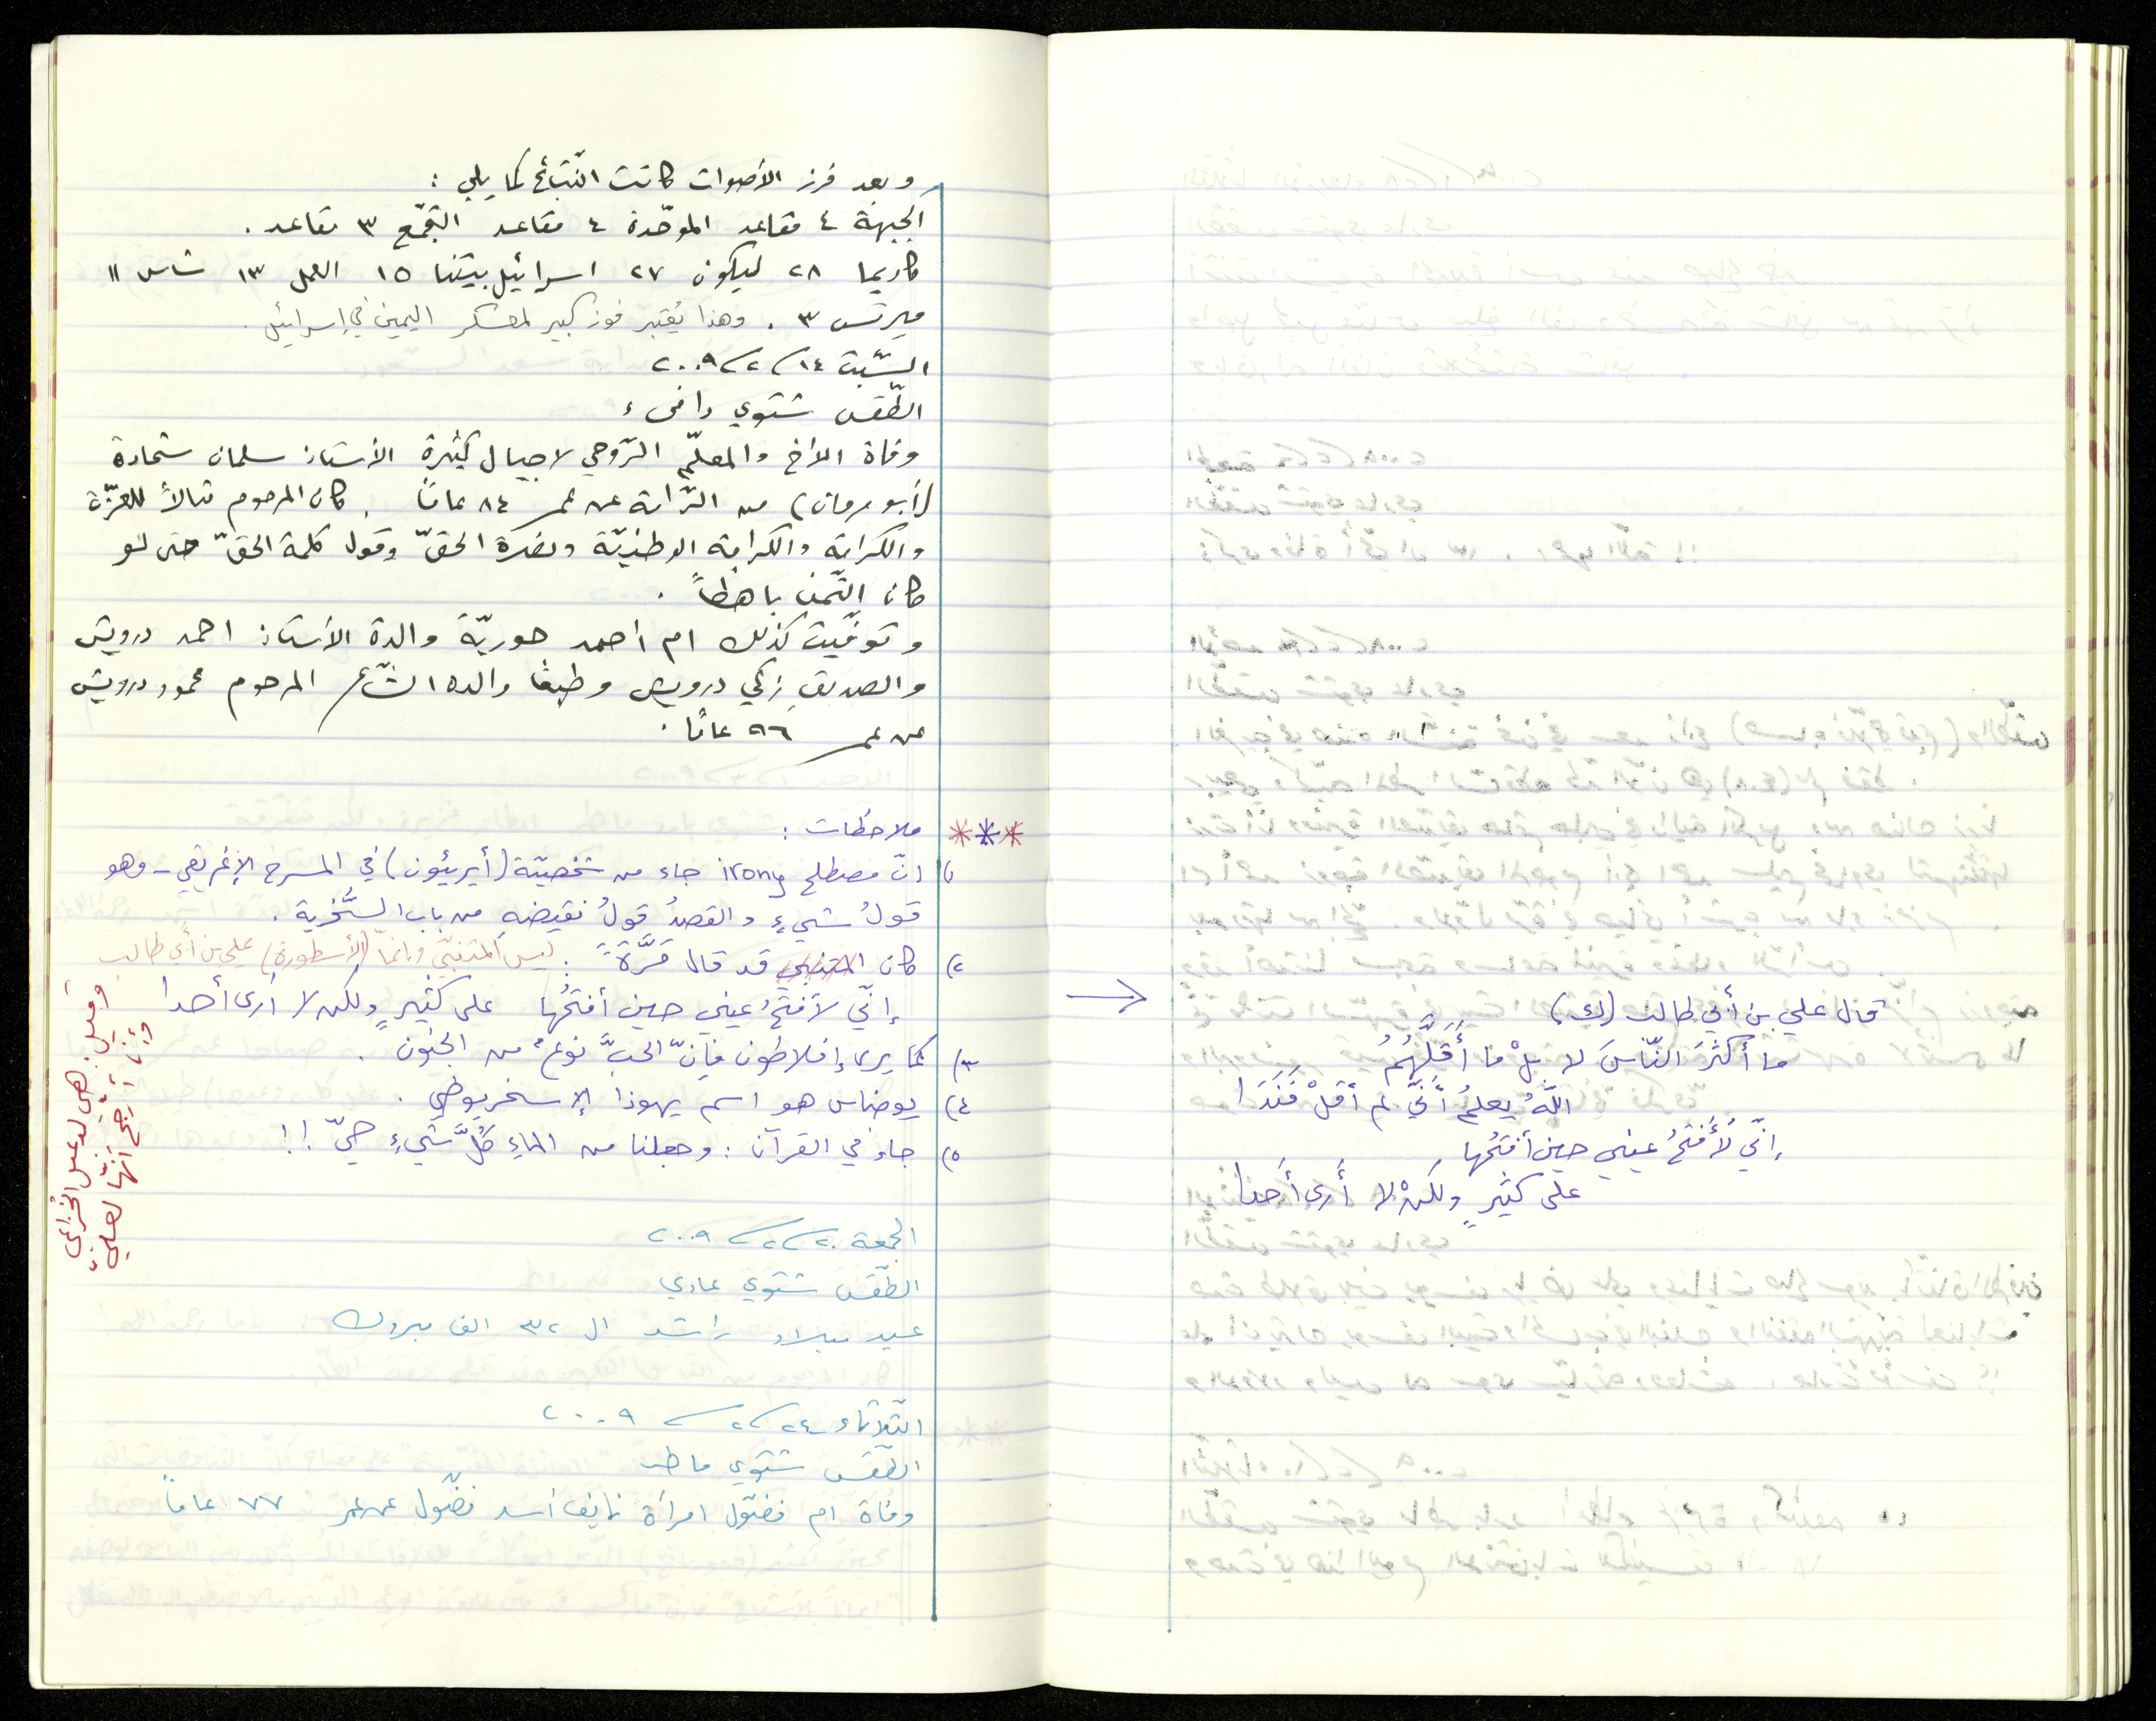 وبعد فرز الأصوات كانت النّتائج كما يلي :
الجبهة ٤ مقاعد الموحّدة ٤ مقاعد التجمّع ٣ مقاعد .
كاديما ٢٨ ليكون ٢٧ اسرائيل بيتنا ١٥ العمل ١٣ شاس ١١
ميرتس ٣ . وهذا يُعتبر فوز كبير لمعسكر اليمين في إسرائيل .
السّبت ١٤/٢/٢٠٠٩
الطّقس شتوي دافىء
وفاة الأخ والمعلّم الرّوحي لاجيال كثيرة الأستاذ سلمان شحادة
(أبو مروان) من الرّامة عن عمر ٨٤ عامًا . كان المرحوم مثالاً للعزّة
والكرامة والكرامة الوطنيّة ونصرة الحقّ وقول كلمة الحقّ حتى لو
كان الثّمن باهظاً .
وتوفّيت كذلك ام أحمد حوريّة والدة الأستاذ احمد درويش
والصديق زكي درويش وطبعًا والدة الشّاعر المرحوم محمود درويش
عن عمر ٩٦ عامًا .
*** ملاحظات :
١) انّ مصطلح irony جاء من شخصيّة (أيرئيون) في المسرح الإغريقي - وهو
قولُ شيءٍ والقصدُ قولُ نقيضهِ من باب السُّخرية .
٢) كان المتنبي قد قال مَرَّةً : ليس المتنبّي وانّما (الأسطورة) علي بن أبي طالب
إنّي لأفتحُ عيني حين أفتحُها على كثيرٍ ولكن لا أرى أحدا
٣) كما يرى إفلاطون فإنّ الحبَّ نوعٌ من الجنون .
٤) يوضاس هو اسم يهوذا الإسخريوطي .
٥) جاء في القرآن : وجعلنا من الماءِ كُلَّ شيءٍ حيّ !!
وقيل: هي لدعبل الخزاعي
وأنا أرجّح أنّها لعليّ
الجمعة ٢٠/٢/٢٠٠٩
الطّقس شتوي عادي
عيد ميلاد راشد ال ٣٢ الف مبروك
الثّلاثاء ٢٤/٢/٢٠٠٩
الطّقس شتوي ماطر
وفاة ام فضّول امرأة نايف أسد فضّول عن عمر ٧٧ عاماً
قال علي بن أبي طالب (ك)
ما أكثرَ النّاسَ لا بلْ ما أَقَلَّهُمُ
اللهُ يعلمُ أنّي لم أقلْ فَنَدَا
إنّي لأَفتحُ عيني حين أفتحُها
على كثيرٍ ولكنْ لا أرى أحَدا